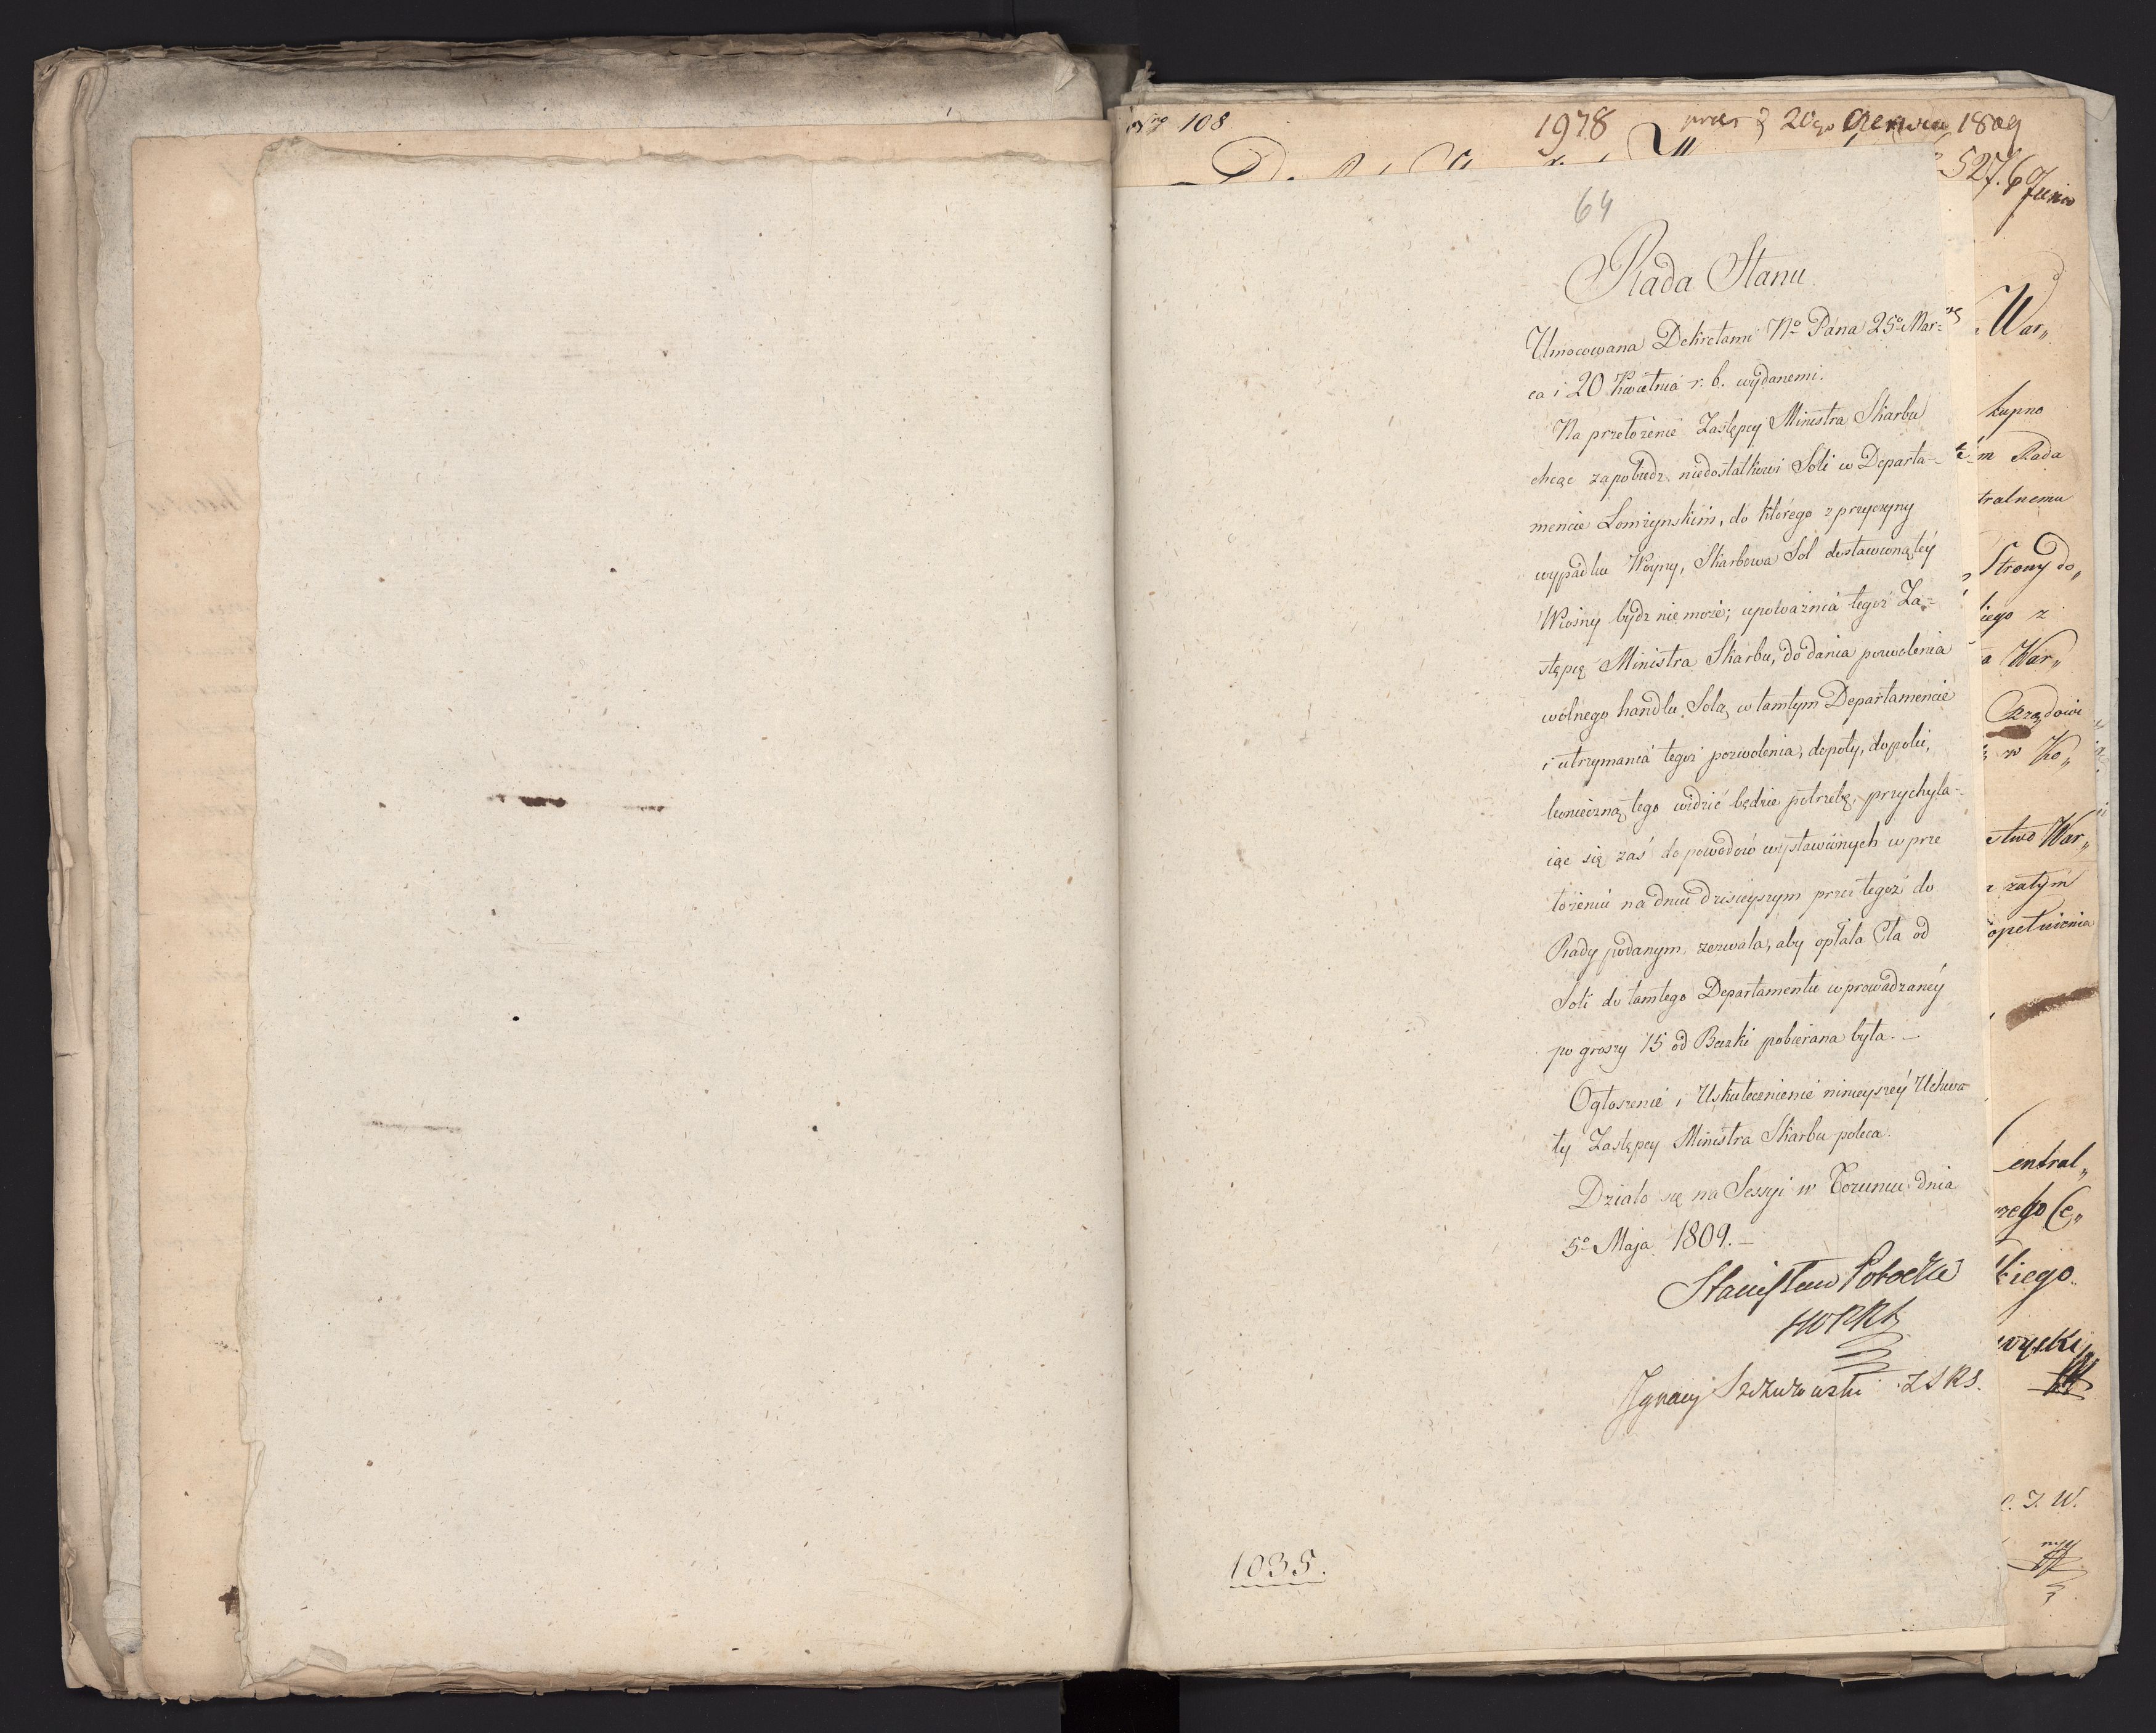 108
1978 20go Czerwca 1809
527. 6 Junio
64
Rada Stanu
Umocowana Dekretami No Pana 25o Mar=
ca i 20 Kwietnia r. b. wydanemi.
Na przełożenie Zastępcy Ministra Skarbu
chcąc zapobiedz niedostatkowi Soli w Departa-
mencie Łomżynskim, do którego z przyczyny
wypadku Woyny, Skarbowa Sol dostawioną tey
Wiosny bydz nie może; upoważnia tegoż Za=
stępcę Ministra Skarbu, do dania pozwolenia
wolnego handlu Solą w tamtym Departamencie
i utrzymania tegoż pozwolenia, dopoty, dopoki,
konieczną tego widzić będzie potrzebę, przychyla-
iąc się zaś do powodow wystawionych w prze
łożeniu na dniu dzisieyszym przez tegoż do
Rady podanym, zezwala, aby opłata Cła od
Soli do tamtego Departamentu wprowadzaney
po groszy 15 od Beczki pobierana była. –
Ogłoszenie i Uskutecznienie ninieyszey Uchwa
ły Zastępcy Ministra Skarbu poleca.
Działo się na Sessyi w Toruniu dnia
5o Maja 1809. –
Stanisław Potocki
Ignacy Szczurowski ZSRS.
1035.
War„
kupno
m Rada
tralnemu
Strony do„
iego z
a War„
Rządowi
w Ko„
stwo War„
zatym
opełnienia
entral„
kiego